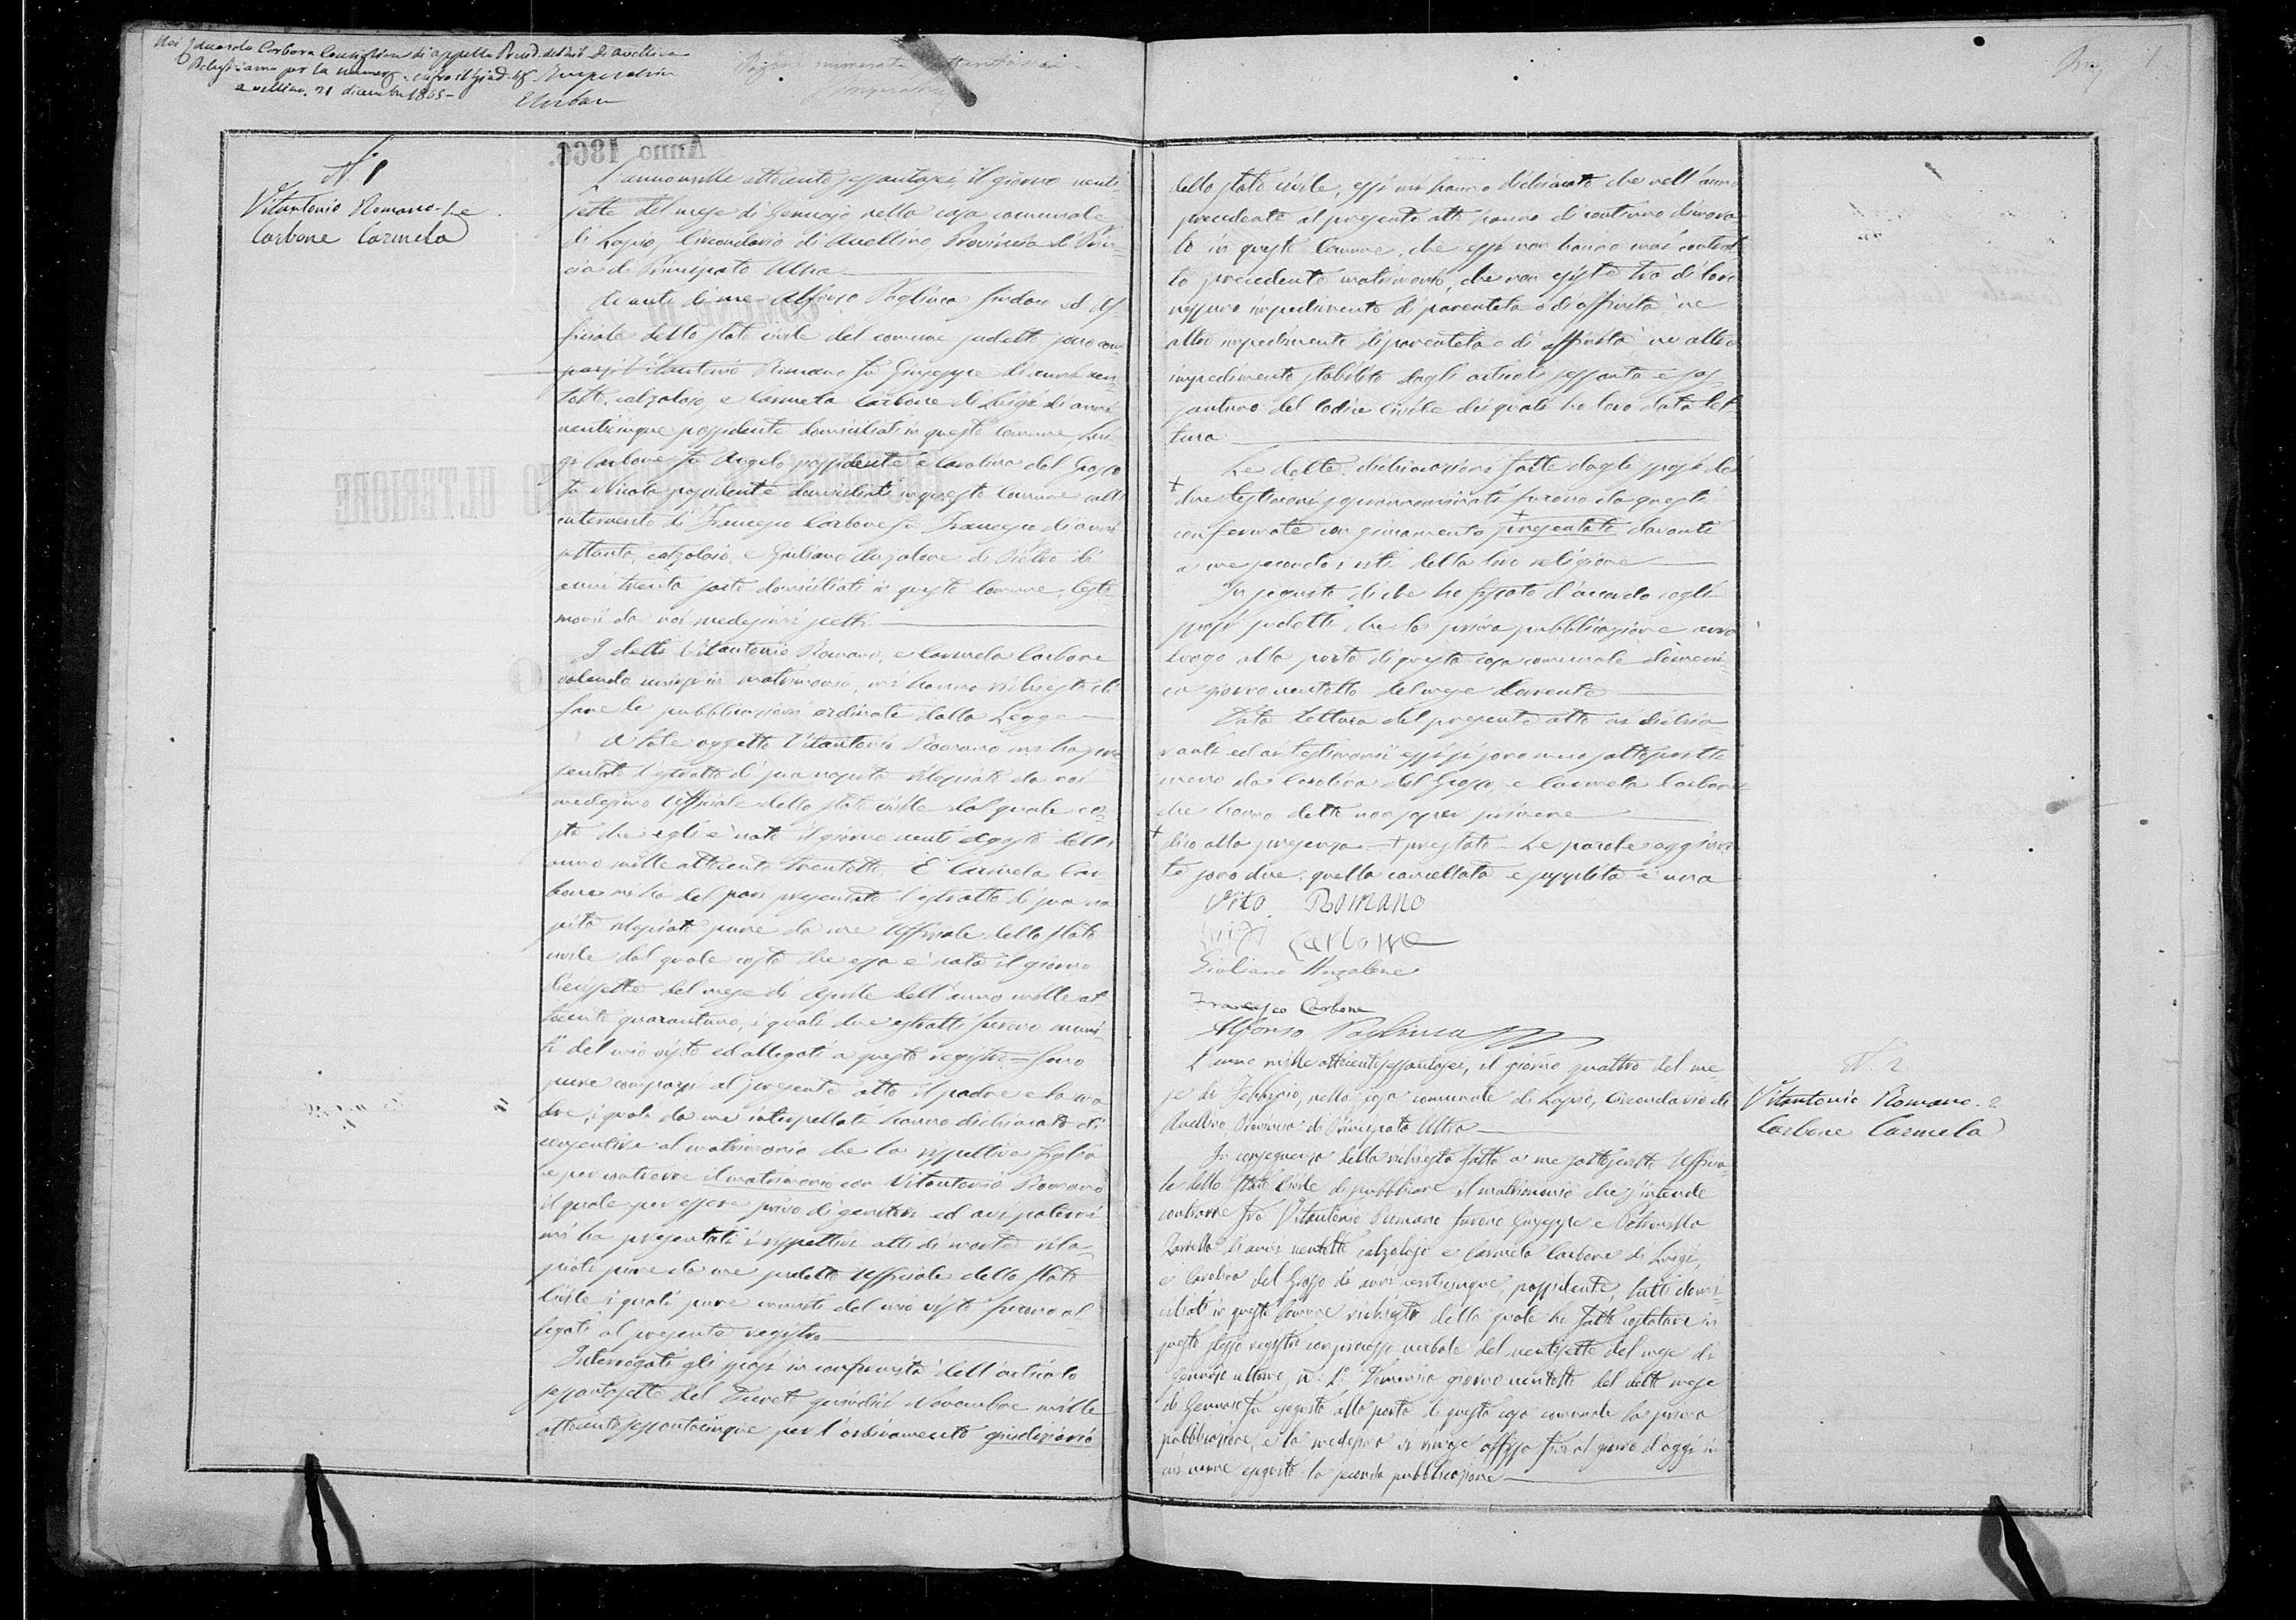 Noi Eduardo Corbora Consigliere di appello Presid. del trib. di Avellino
Deleghiamo per la numer. e cifra il Giud. Sig. Imperatrice
Avellino. 21 dicembre 1865 -
Pagine numerate
Anno 1866.
N. 1
Vitantonio Romano - e
Carbone Carmela
L'anno mille ottocento sessantasei, il giorno venti
sette del mese di Gennajo nella casa comunale
di Lapio, Circondario di Avellino Provincia di Prin-
cia di Principato Ultra
Avanti di me Alfonso Pagliuca Sindaco ed Uf-
ficiale dello stato civile del comune sudetto sono com-
parsi Vitantonio Romano fu Giuseppe di anni ven-
totto, calzolaio, e Carmela Carbone di Luigi di anni
venticinque possidente domiciliati in questo Comune, Lui-
gi Carbone fu Angelo possidente e Carolina del Grosso
fu Nicola possidente domiciliati in questo Comune coll'
intervento di Francesco Carbone fu Francesco di anni
settanta, calzolaio, e Giuliano Anzalone di Pietro di
anni trenta sarto domiciliati in questo Comune, testi-
monii da noi medesimi scelti
I detti Vitantonio Romano, e Carmela Carbone
volendo unirsi in matrimonio, mi hanno richiesto di
fare le pubblicazioni ordinate dalla Legge
A tale oggetto Vitantonio Romano mi ha pre-
sentato l'estratto di sua nascita rilasciato da noi
medesimo Uffiziale dello stato civile dal quale co-
sta che egli è nato il giorno venti Agosto dello
anno mille ottocento trentotto. E Carmela Car-
bone mi ha del pari presentato l'estratto di sua na
scita rilasciato pure da me Uffiziale dello stato
civile dal quale costa che essa è nata il giorno
diecissette del mese di Aprile dell'anno mille ot-
tocento quarantuno, i quali due estratti furono muni-
ti del mio visto ed allegati a questo registro = Sono
pure comparsi al presente atto il padre e la ma
dre, i quali da me interpellati hanno dichiarato di
consentire al matrimonio che la rispettiva figlia
è per contrarre il matrimonio con Vitantonio Romano
il quale per essere privo di genitori ed avi paterni
mi ha presentati i rispettivi atti di morte rila-
sciati pure da me sudetto Uffiziale dello stato
Civile i quali pure muniti del mio visto furono al
legati al presente registro
Interrogati gli sposi in conformità dell'articolo
sessantasette del Decreto quindici Novembre mille
ottocentosessantacinque per l'ordinamento giudiziario
dello stato civile, essi mi hanno dichiarato che nell'anno
precedente al presente atto hanno di continuo dimora-
to in questo Comune, che essi non hanno mai contrat-
to precedente matrimonio, che non esiste tra di loro
nessuno impedimento di parentela o di affinità, ne
altro impedimento di parentela o di affinità, ne altro
impedimento stabilito dagli articoli sessanta e ses-
santuno del Codice Civile dei quali ho loro data let-
tura
Le dette dichiarazioni fatte dagli sposi dei
+ due testimoni quinominati furono da questi
confermate con giuramento + presentati davanti
a me secondo i riti della loro religione
In seguito di che ho fissato d'accordo cogli
sposi sudetti che la prima pubblicazione avrà
luogo alla porta di questa casa comunale domeni-
ca giorno ventotto del mese corrente
Data lettura del presente atto ai dichia-
ranti ed ai testimonii essi si sono meco sottoscritti
meno da Carolina del Grosso e Carmela Carbone
che hanno detto non saper scrivere
+ dico alla presenza - + prestato - Le parole aggiun-
te sono due, quella cancellata e supplita è una
Vito Romano
Luigi Carbone
Giuliano Anzalone
Francesco Carbone
Alfonso Pagliuca
L'anno mille ottocentosessantasei, il giorno quattro del me-
se di Febbrajo, nella casa comunale di Lapio, Circondario di
Avellino Provincia di Principato Ultra
N. 2
Vitantonio Romano. e
Carbone Carmela
In conseguenza della richiesta fatta a me sottoscritto Uffizia-
le dello stato Civile di pubblicare il matrimonio che s'intende
contrarre fra Vitantonio Romano furono Giuseppe e Petronilla
di anni ventotto calzolajo e Carmela Carbone di Luigi,
e Carolina del Grosso di anni venticinque, possidente, tutti domi-
ciliati in questo Comune richiesta della quale ho fatto costatare in
questo stesso registro con processo verbale del ventisette del mese di
Gennajo ultimo, N. 1.° Domenica giorno ventotto del detto mese
di Gennajo fu eseguita alla porta di questa casa comunale la prima
pubblicazione, e la medesima vi rimase affissa fino al giorno d'oggi in
cui venne eseguita la seconda pubblicazione